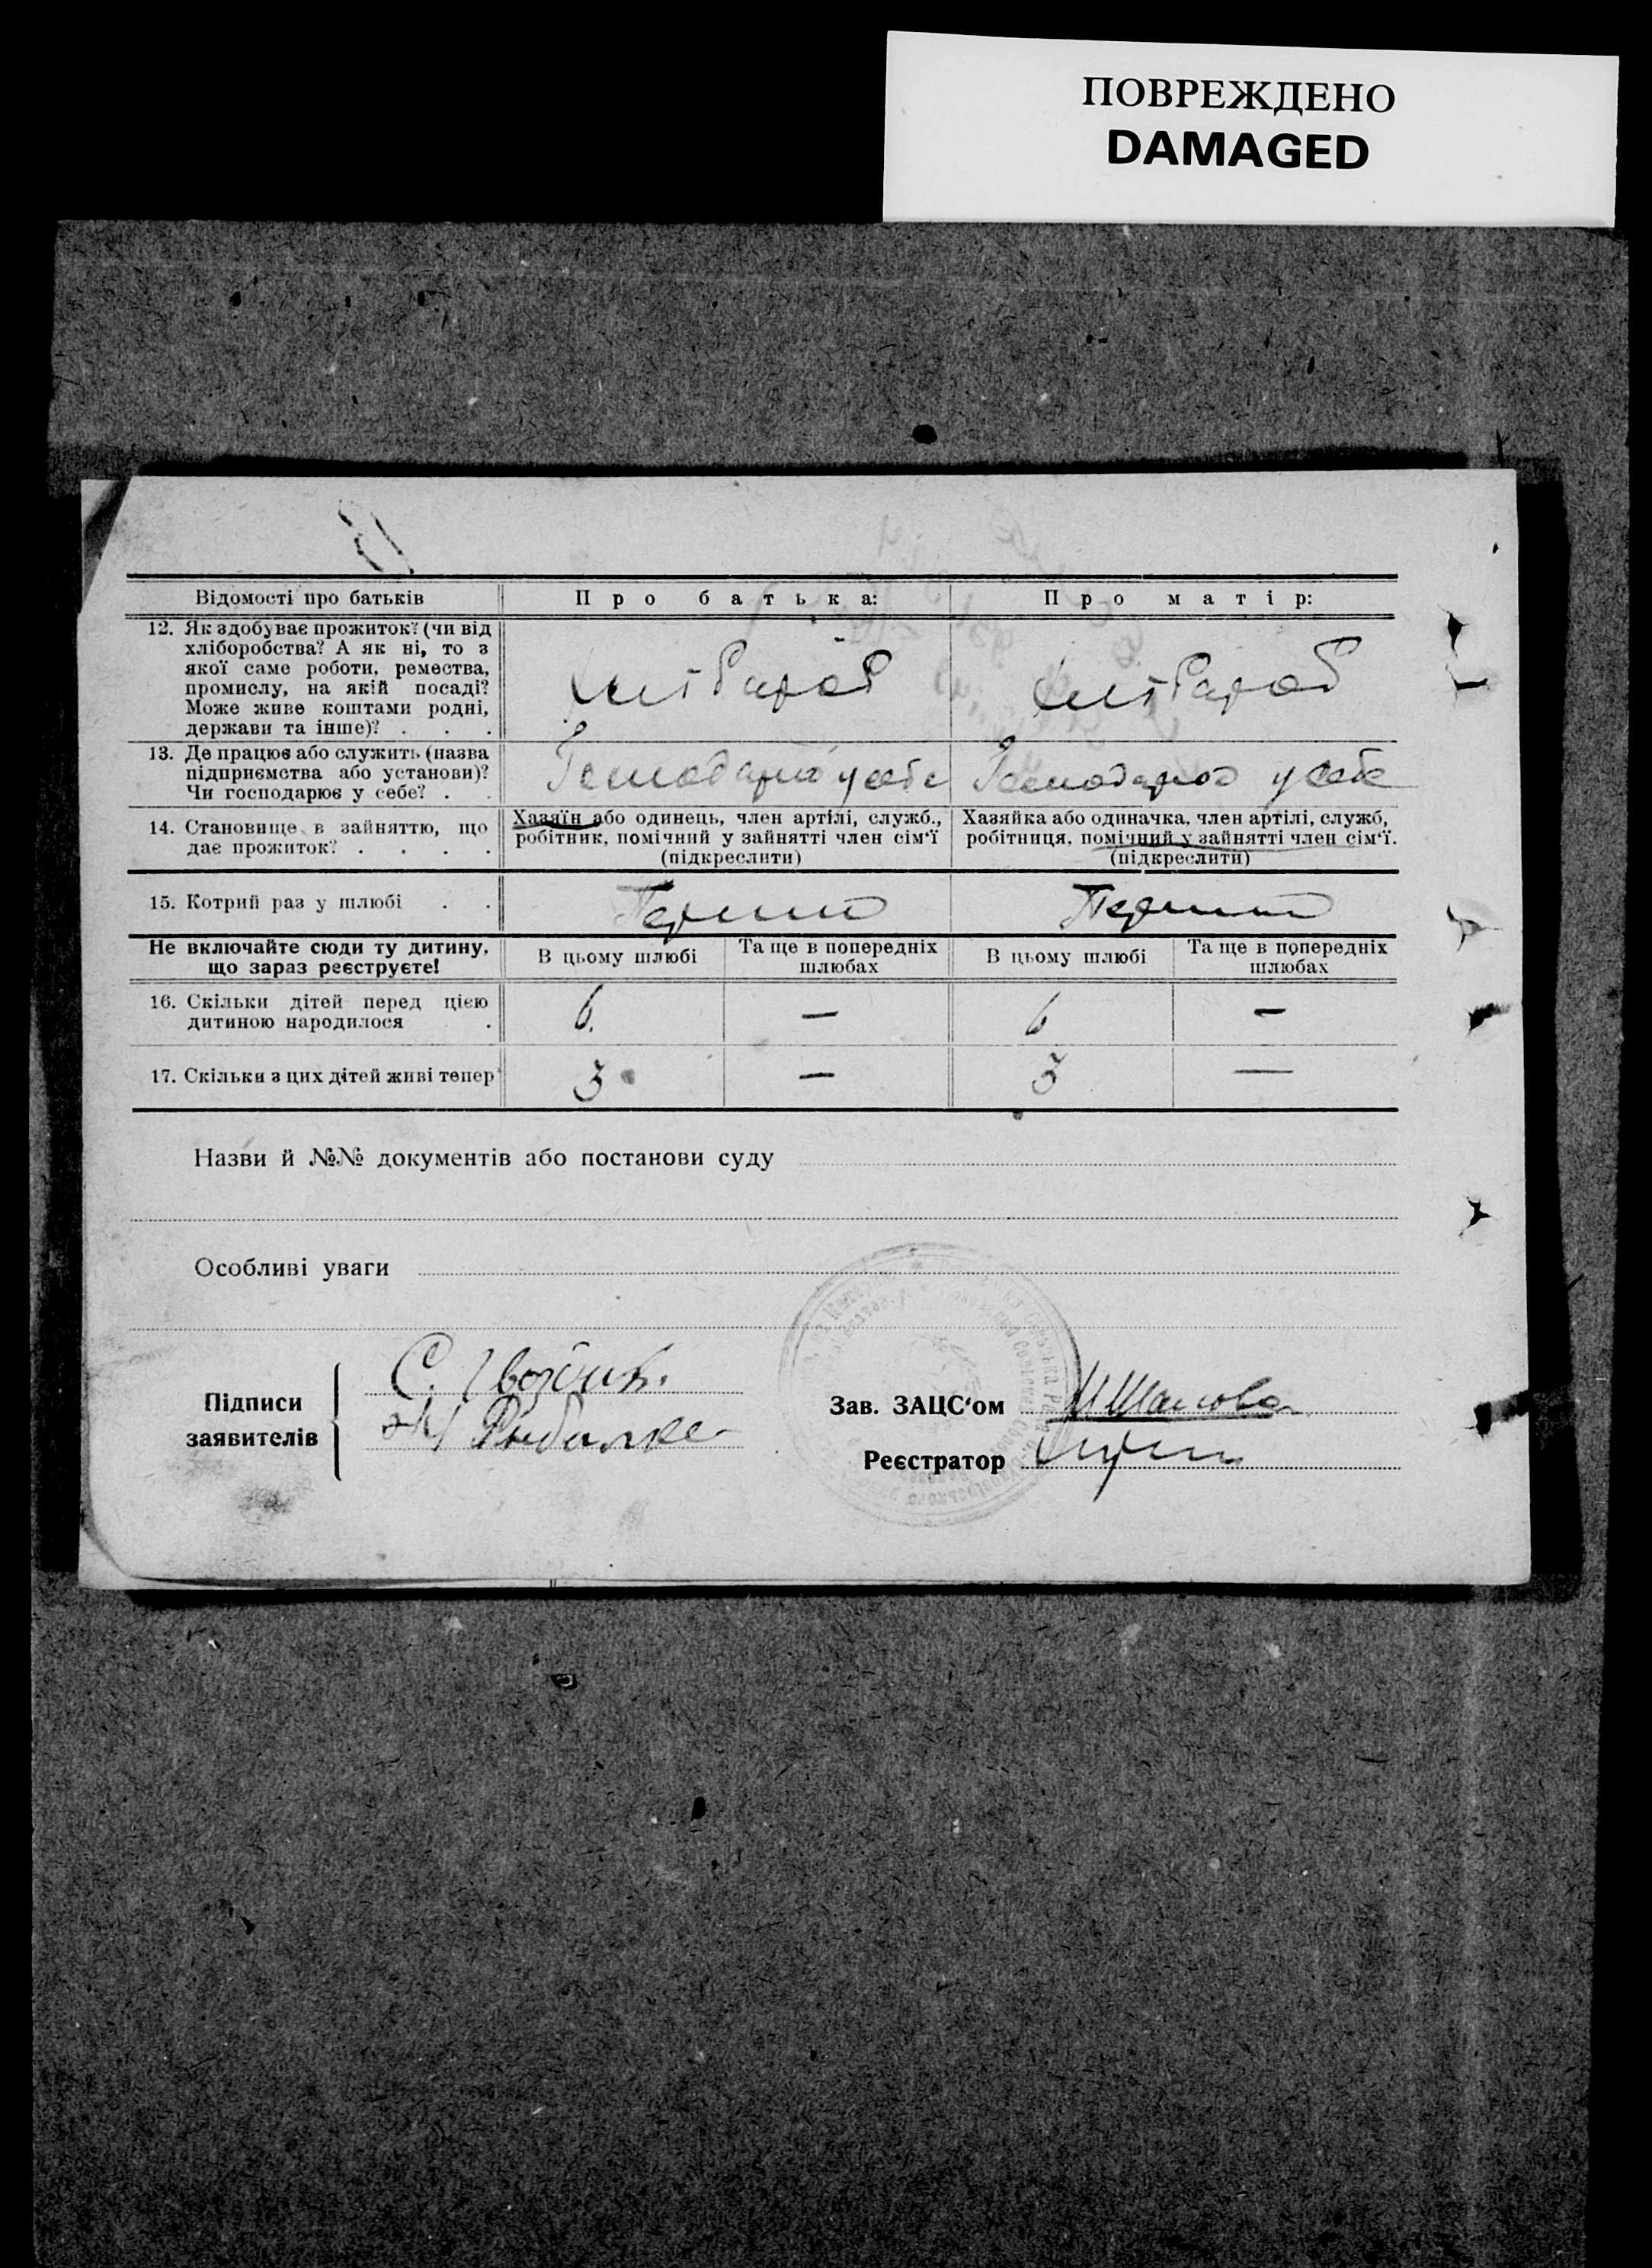 ПОВРЕЖДЕНО
DAMAGED
Відомості про батьків
Про батька:
Про матір:
12. Як здобуває прожиток? (чи від
хліборобства? А як ні, то з
якої саме роботи, ремества,
промислу, на якій посаді?
Може живе коштами родні,
держави та інше)? . . .
Хлібароб
Хлібароб
13. Де працює або служить (назва
підприємства або установи)?
Чи господарює у себе? . .
у себе
у себе
14. Становище в зайняттю, що
дає прожиток? . . . .
Хазяїн або одинець, член артілі, служб.,
робітник, помічний у зайнятті член сім'ї
(підкреслити)
Хазяйка або одиначка, член артілі, служб,
робітниця, помічний у зайнятті член сім'ї.
(підкреслити)
15. Котрий раз у шлюбі . .
Не включайте сюди ту дитину,
що зараз реєструєте!
В цьому шлюбі
Та ще в попередніх
шлюбах
В цьому шлюбі
Та ще в попередніх
шлюбах
16. Скільки дітей перед цією
дитиною народилося .
6. — 6 —
17. Скільки з цих дітей живі тепер
3 — 3 —
Назви й №№ документів або постанови суду
Особливі уваги
Підписи
заявителів
С.
Рибалка
Зав. ЗАЦС'ом
Реєстратор